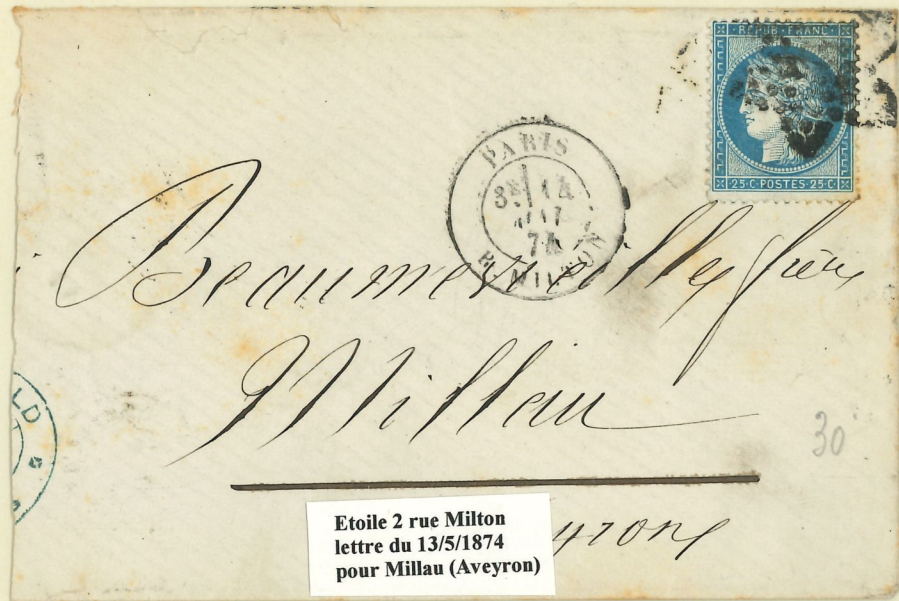 REPUB · FRANC ·
25·C·POSTES·25·C·
PARIS
3E 14
MAI
74
R. MILTON
Millau
30
LD
Etoile 2 rue Milton
lettre du 13/5/1874
pour Millau (Aveyron)
yrone